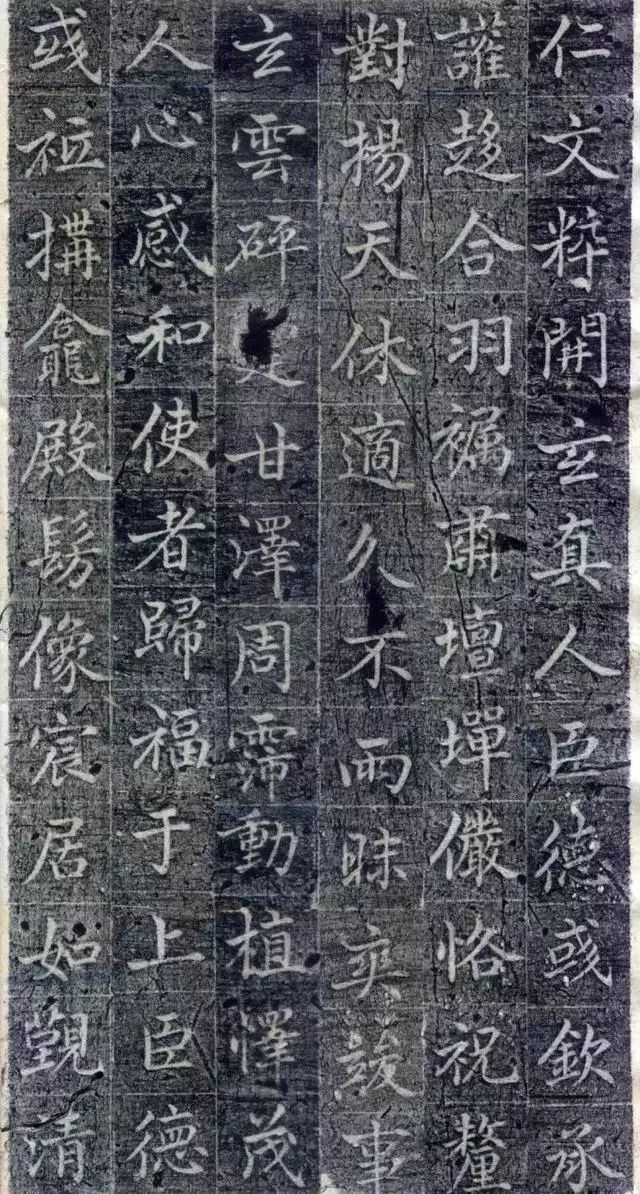 仁文粹開玄真人臣德彧欽承
讙趍合羽褐肅壇墠儼恪祝釐
對揚天休適久不雨昧爽竣事
玄雲砰甘澤周霈動植懌茂
人心感和使者歸福于上臣德
彧祗搆龕殿髣像宸居如覲清